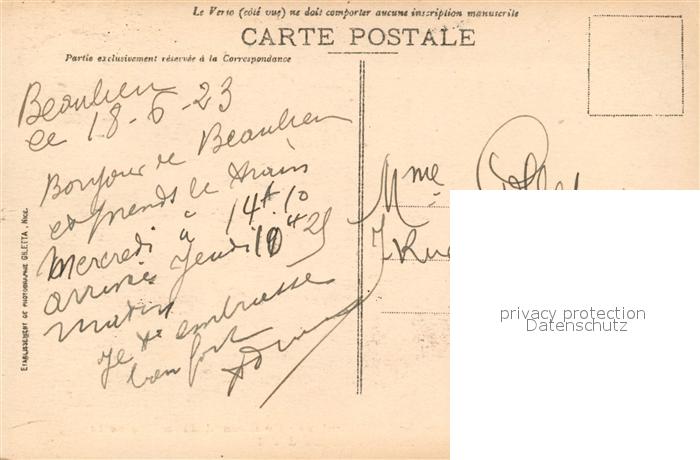 Le Verso (côté vue) ne doit comporter aucune inscription manuscrite
CARTE POSTALE
Partie exclusivement réservée à la Correspondance
Beaulieu
le 18-6-23
Bonjour de Beaulieu
et prends le train
Mercredi à 14h.10
arrivée Jeudi 10h 25
matin
Je te embrasse
bien fort
Mme
7 Rue
ETABLISSEMENT DE PHOTOGRAPHIE GILETTA, NICE.
privacy protection
Datenschutz